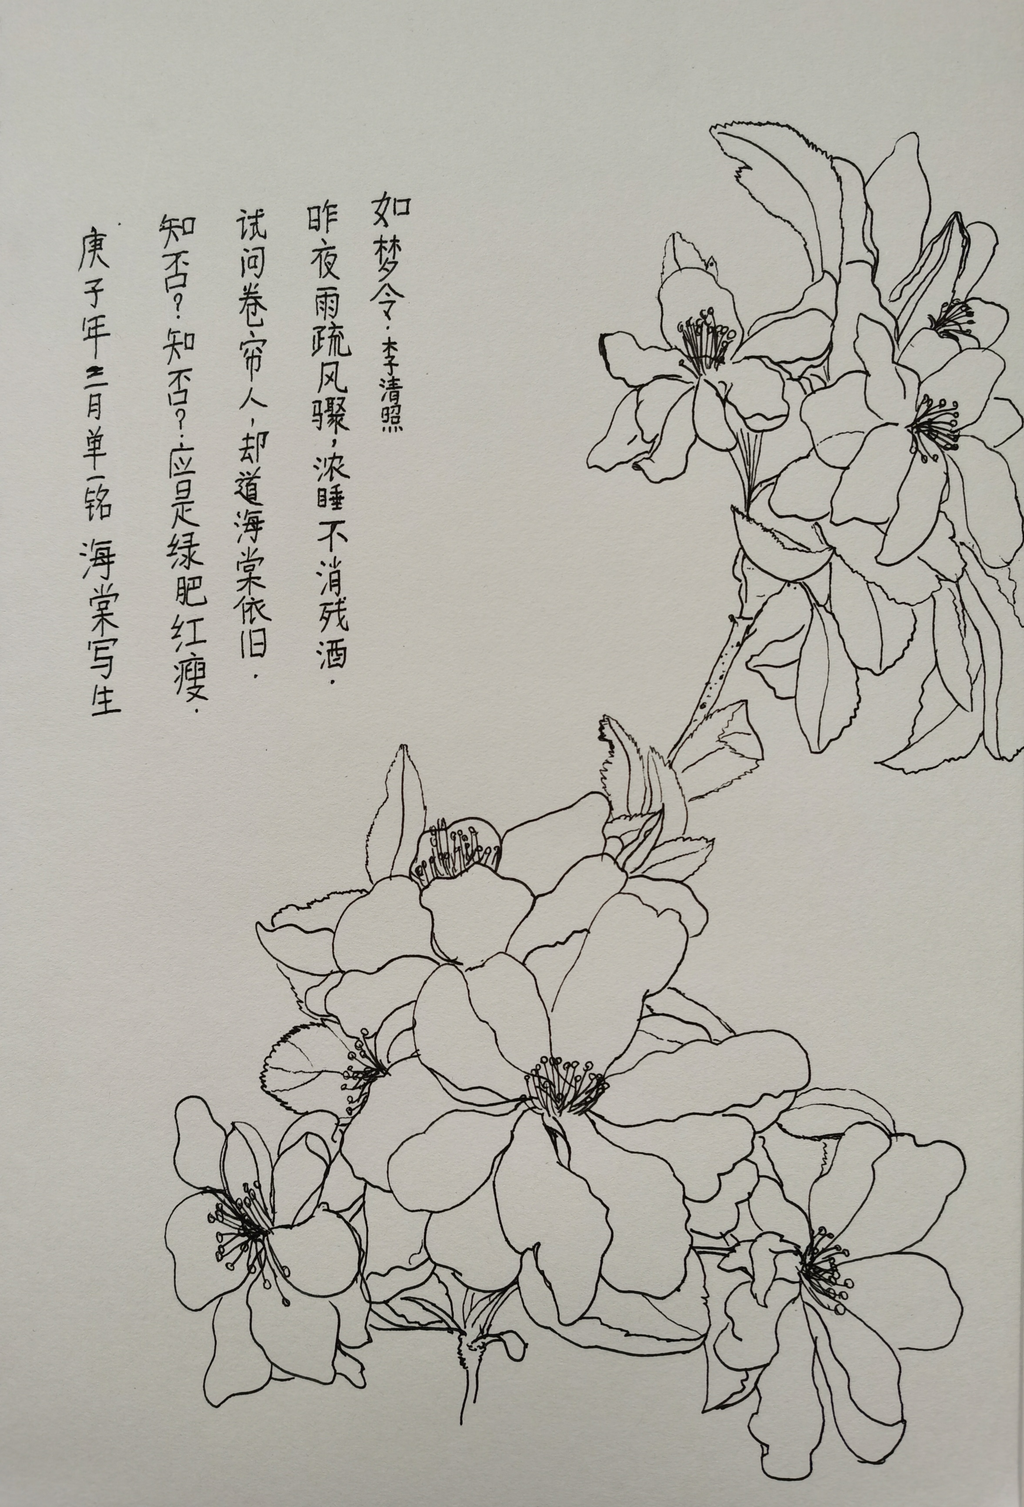 如梦令·李清照
昨夜雨疏风骤,浓睡不消残酒.
试问卷帘人,却道海棠依旧.
知否?知否?应是绿肥红瘦.
庚子年二月单一铭 海棠写生